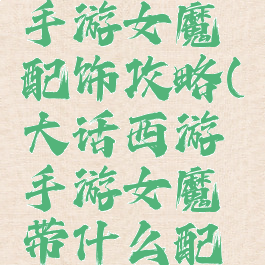 手游女魔
配饰攻略(
大话西游
手游女魔
带什么配